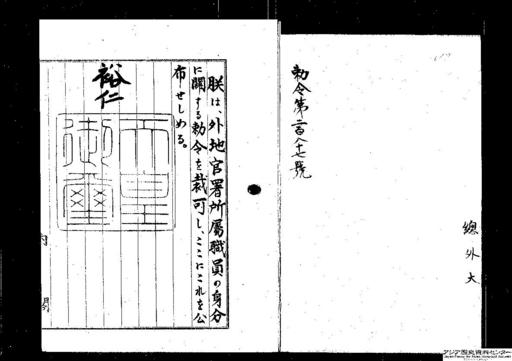 勅令第二百八十七號
總外大
朕は、外地官署所屬職員の身分
に關する勅令を裁可し、ここにこれを公
布せしめる。
裕仁
天皇
御璽
内閣
アジア歴史資料センター